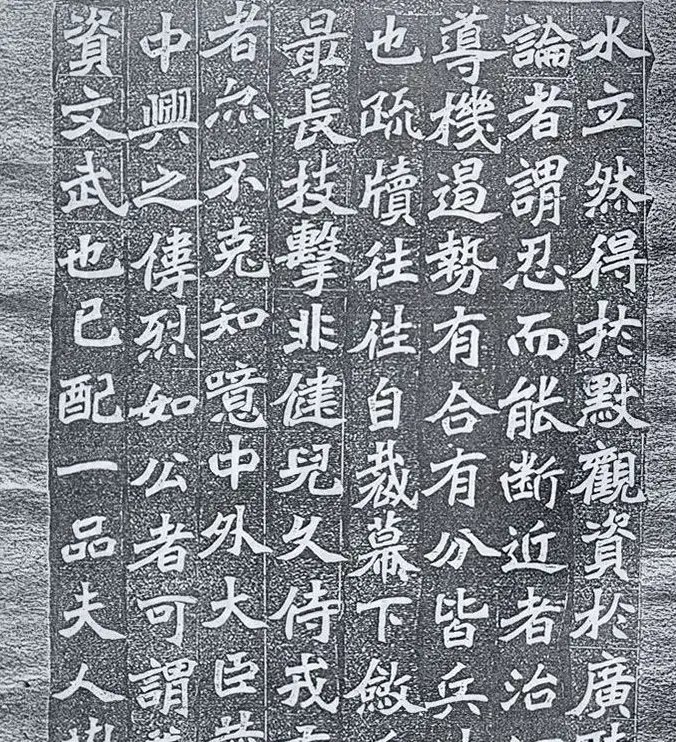 水立然得扵默觀資扵廣
論者謂忍而能断近者治
導機遏勢有合有分皆兵
也疏牘往往自裁幕下斂
最長技擊非健兒久侍戎
者亦不克知噫中外大臣
中興之偉烈如公者可謂
資文武也已配一品夫人